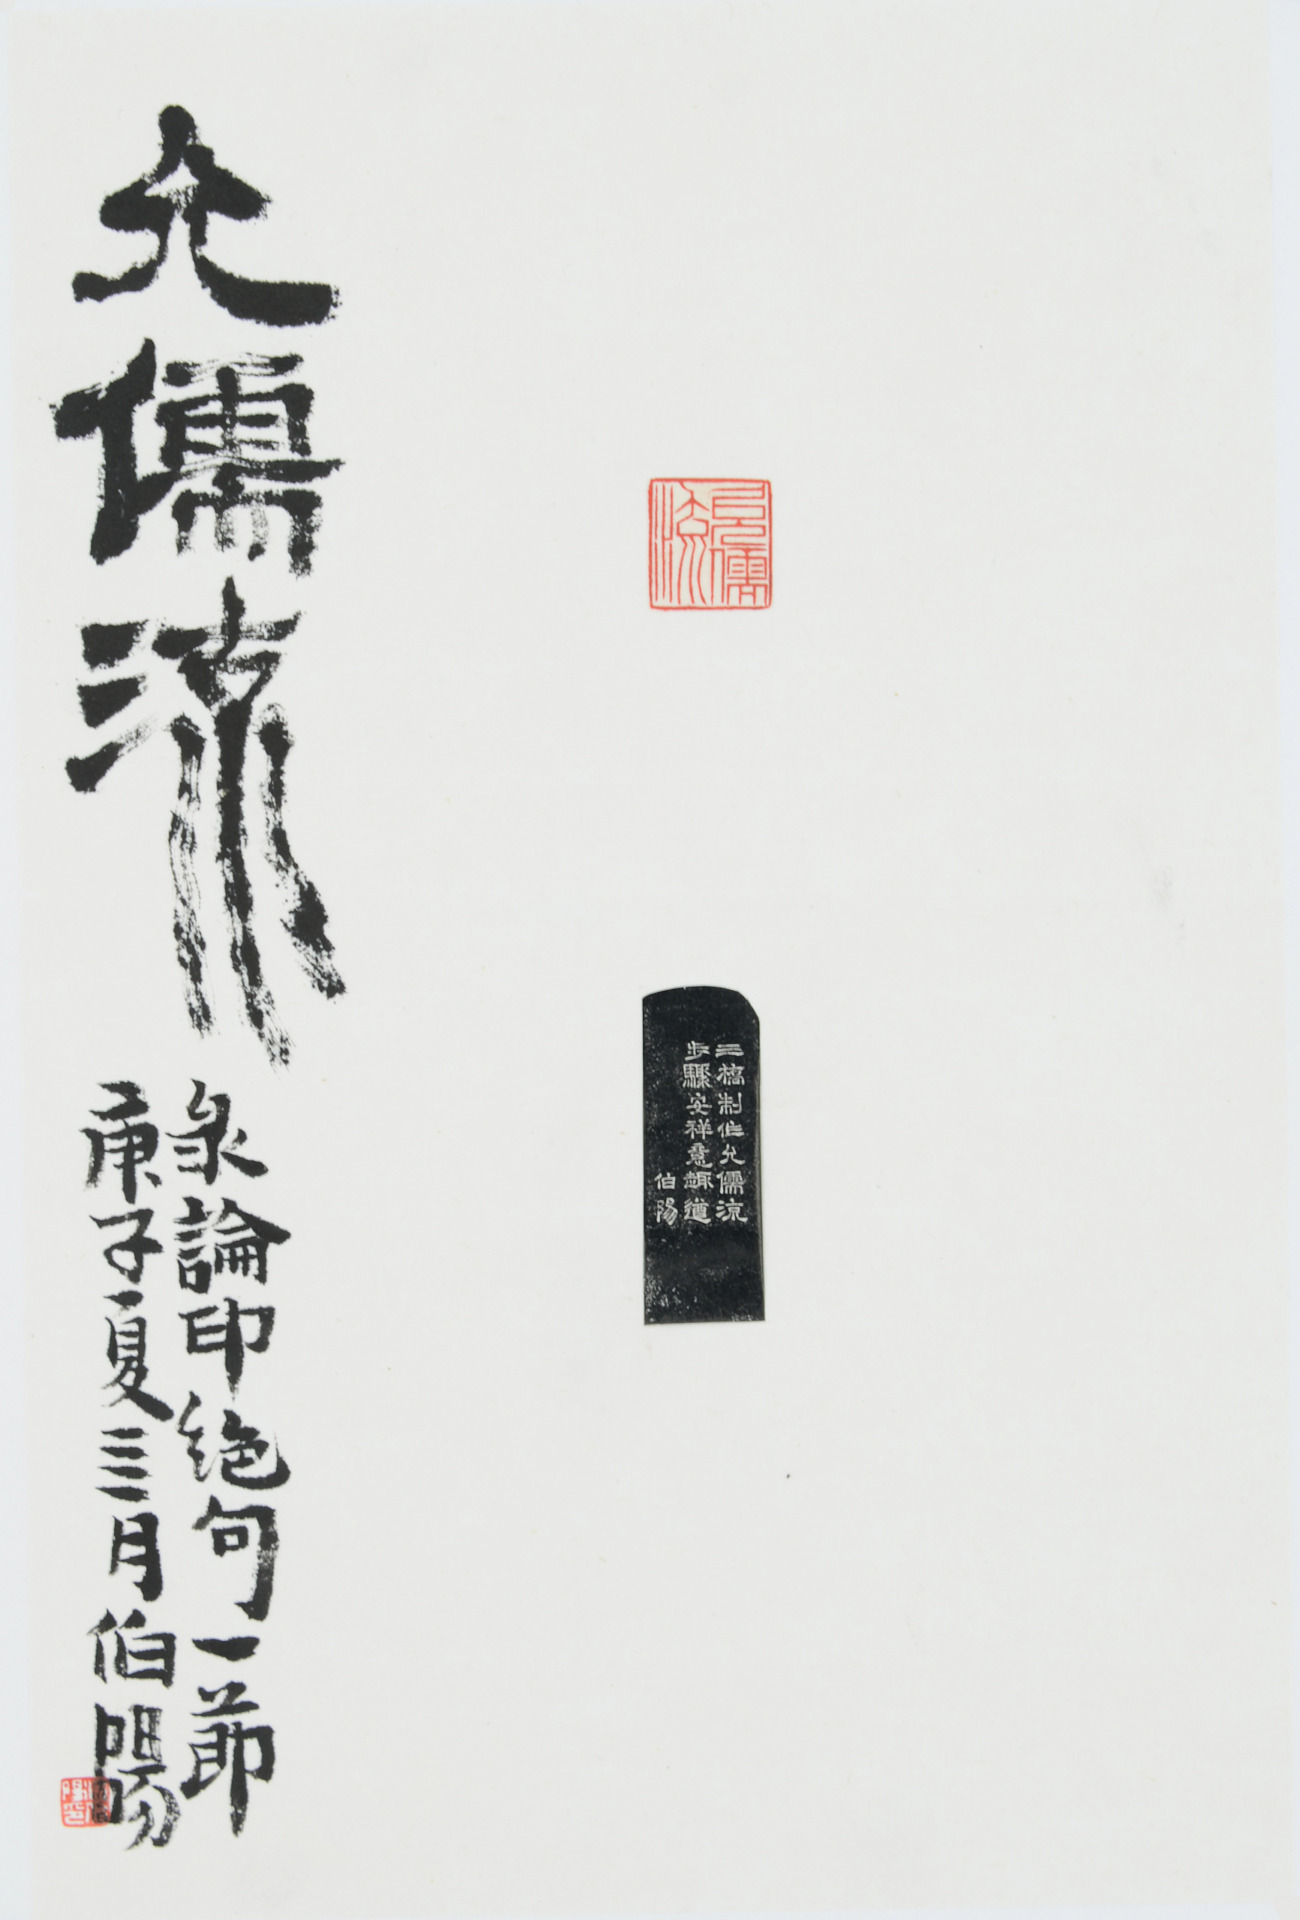 允儒流
彔論印絕句一節
庚子夏三月伯陽
允儒流
三橋制作允儒流
步驟安祥意趣遒
伯陽